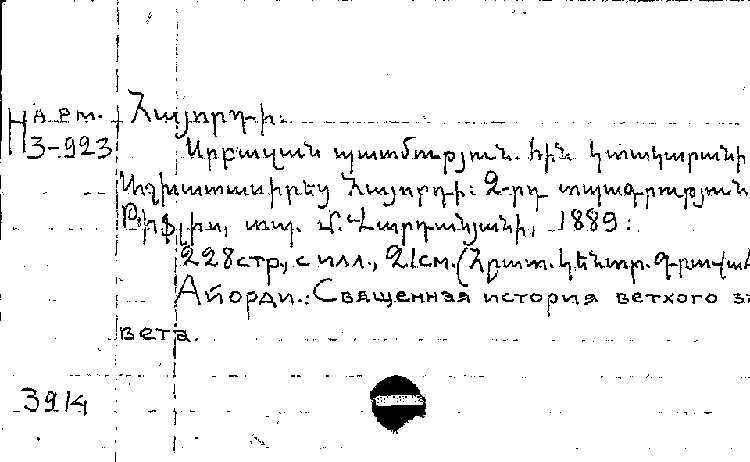 На арм. Հայորդի։
3-923
Սրբազան պատմություն. հին կտակարանի
Աշխատասիրեց Հայորդի։ 2-րդ տպագրություն
Թիֆլիս, տպ. Մ. Վարդանյանի, 1889։
228стр., с илл., 21см. (Հրատ. կենտր. գրավա
Айорди.: Священная история ветхого за
вета.
3914